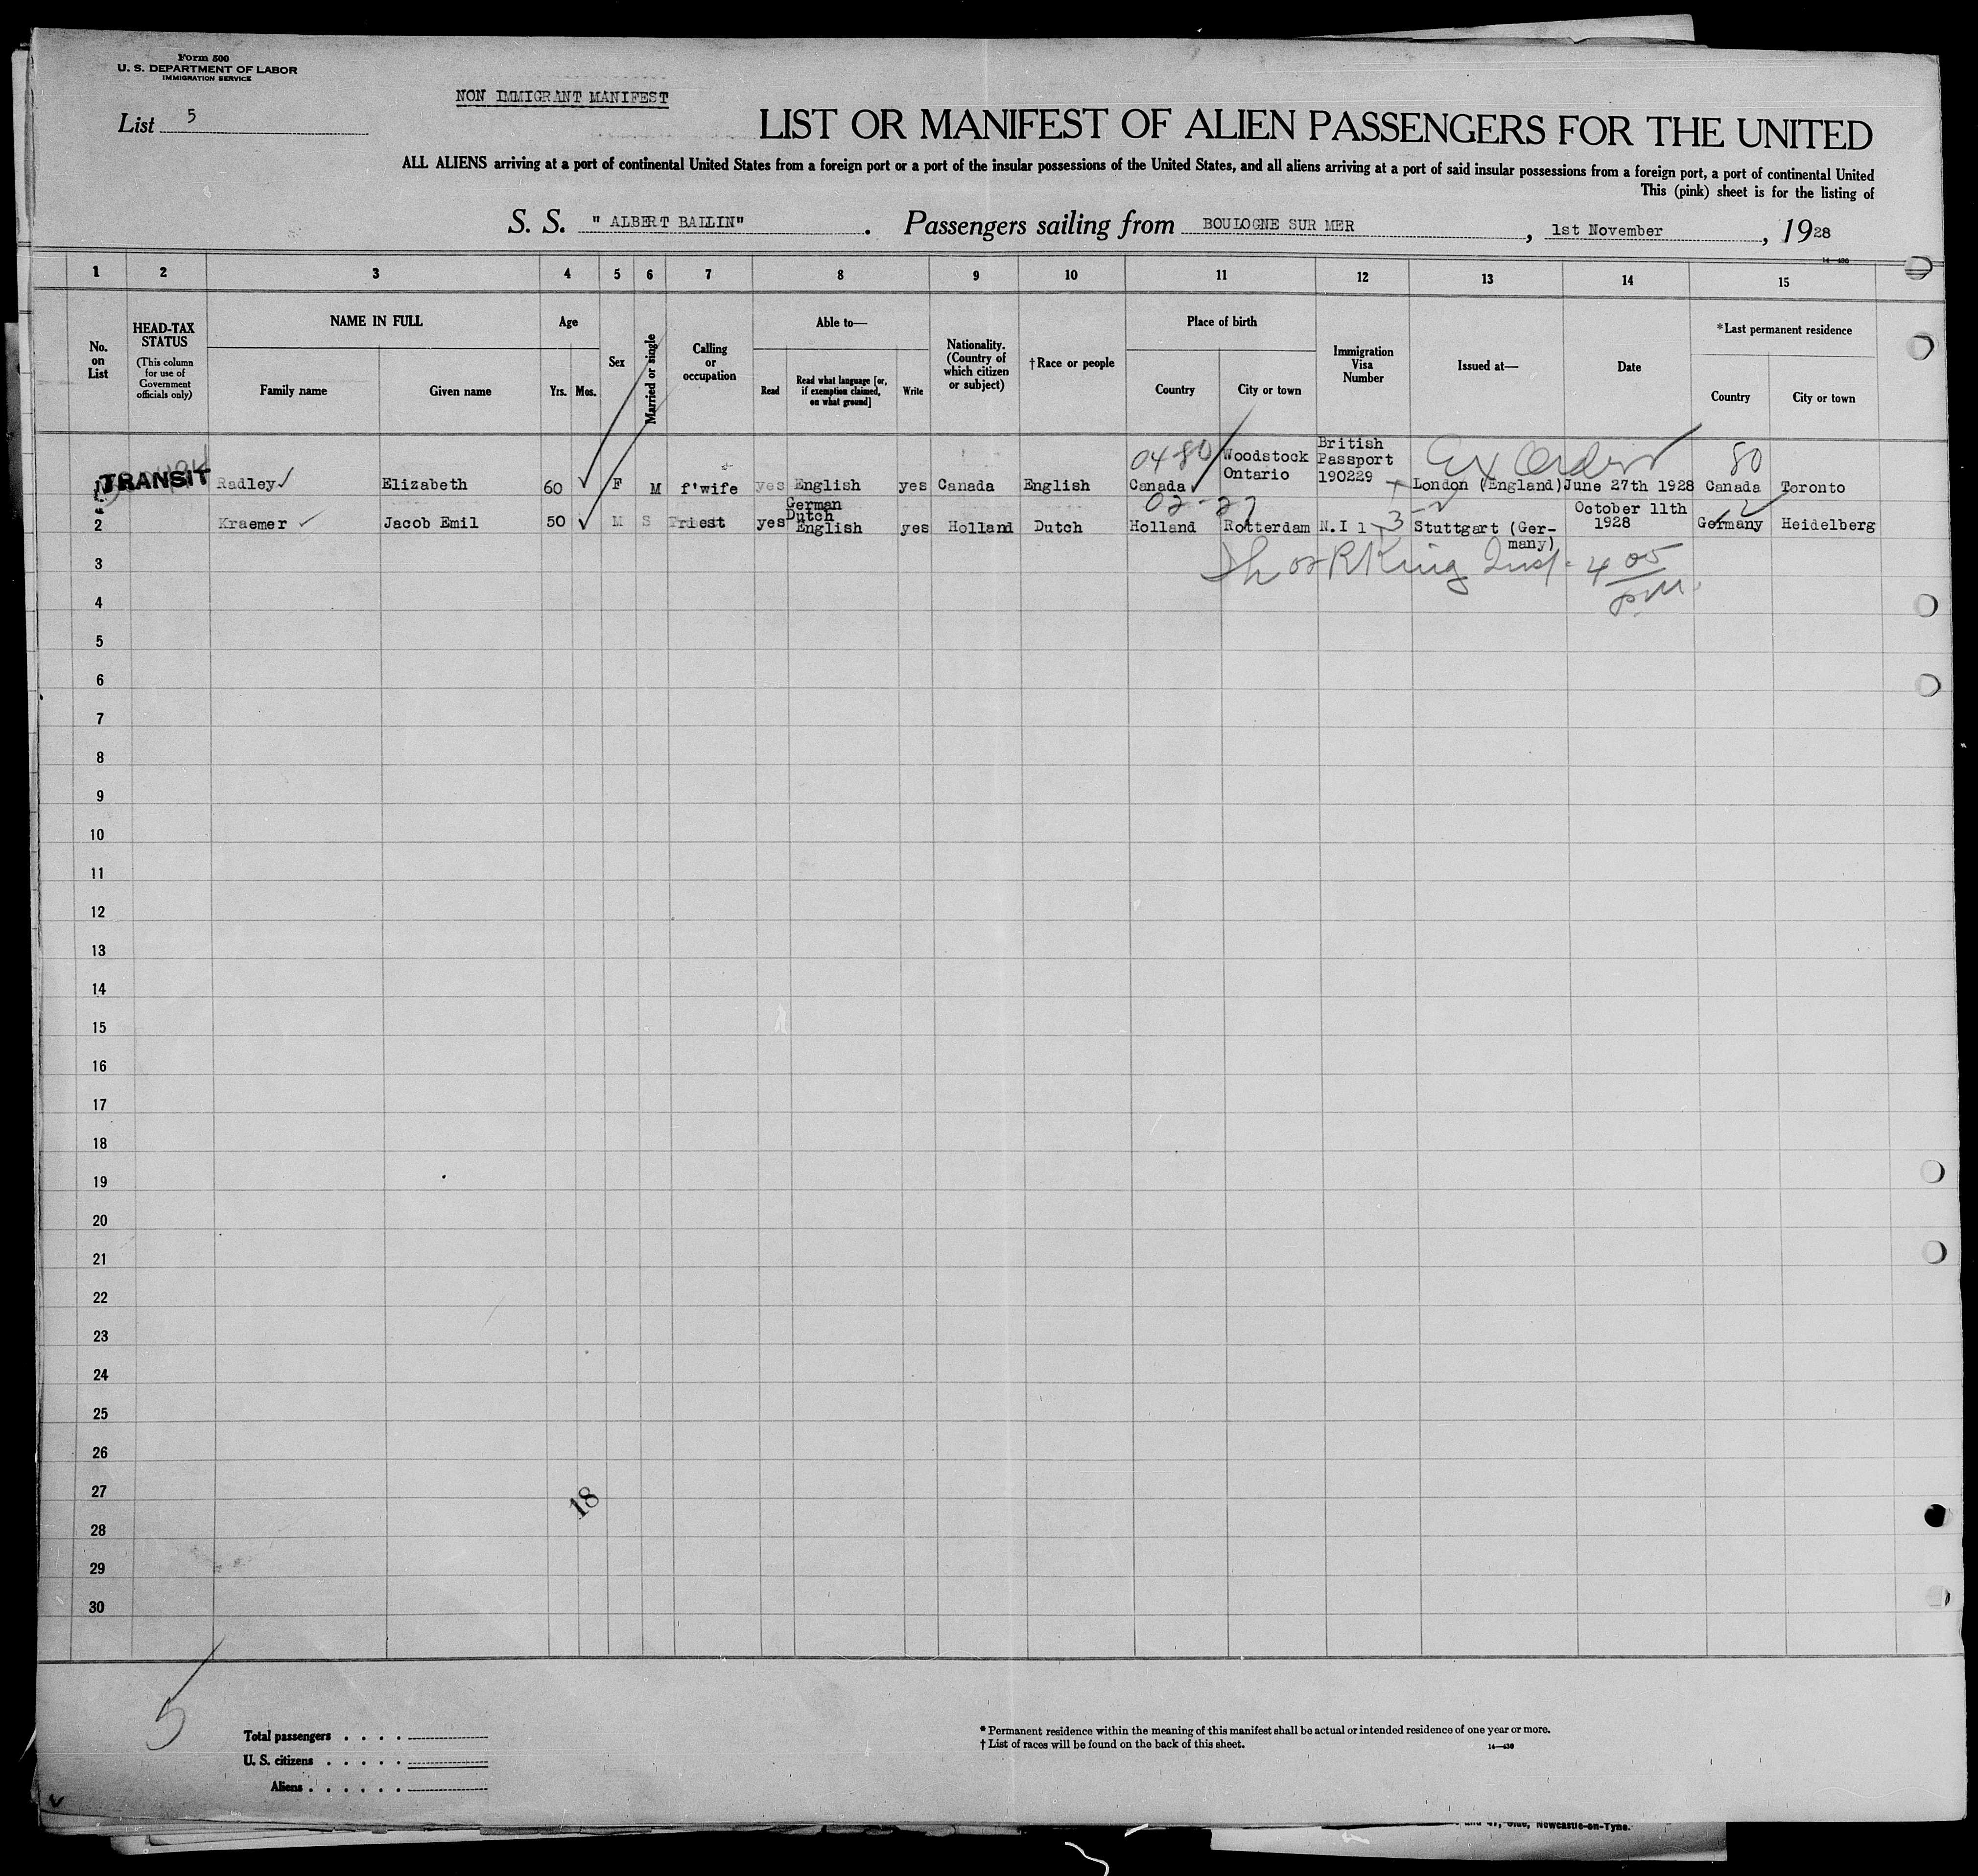 Form 500
U. S. DEPARTMENT OF LABOR
IMMIGRATION SERVICE
NON IMMIGRANT MANIFEST
List 5
LIST OR MANIFEST OF ALIEN PASSENGERS FOR THE UNITED
ALL ALIENS arriving at a port of continental United States from a foreign port or a port of the insular possessions of the United States, and all aliens arriving at a port of said insular possessions from a foreign port, a port of continental United
This (pink) sheet is for the listing of
S. S. " ALBERT BALLIN" . Passengers sailing from BOULOGNE SUR MER , 1st November , 1928
14—430
1 2 3 4 5 6 7 8 9 10 11 12 13 14 15
No. on List
HEAD-TAX STATUS
(This column for use of Government officials only)
NAME IN FULL
Family name
Given name
Age
Yrs. Mos.
Sex
Married or single
Calling or occupation
Able to—
Read
Read what language [or, if exemption claimed, on what ground]
Write
Nationality. (Country of which citizen or subject)
†Race or people
Place of birth
Country
City or town
Immigration Visa Number
Issued at—
Date
*Last permanent residence
Country
City or town
04 80
Ex Order
80
TRANSIT Radley Elizabeth 60 F M f'wife yes English yes Canada English Canada Woodstock Ontario British Passport 190229 London (England) June 27th 1928 Canada Toronto
02-27
3-2
12
2 Kraemer Jacob Emil 50 M S Priest yes German Dutch English yes Holland Dutch Holland Rotterdam N.I 1 Stuttgart (Ger-many) October 11th 1928 Germany Heidelberg
3
King Insp. 4 05 PM.
4
5
6
7
8
9
10
11
12
13
14
15
16
17
18
19
20
21
22
23
24
25
26
27
18
28
29
30
5
Total passengers . . . .
U. S. citizens . . . . .
Aliens . . . . . .
* Permanent residence within the meaning of this manifest shall be actual or intended residence of one year or more.
† List of races will be found on the back of this sheet.
14—430
Newcastle-on-Tyne.